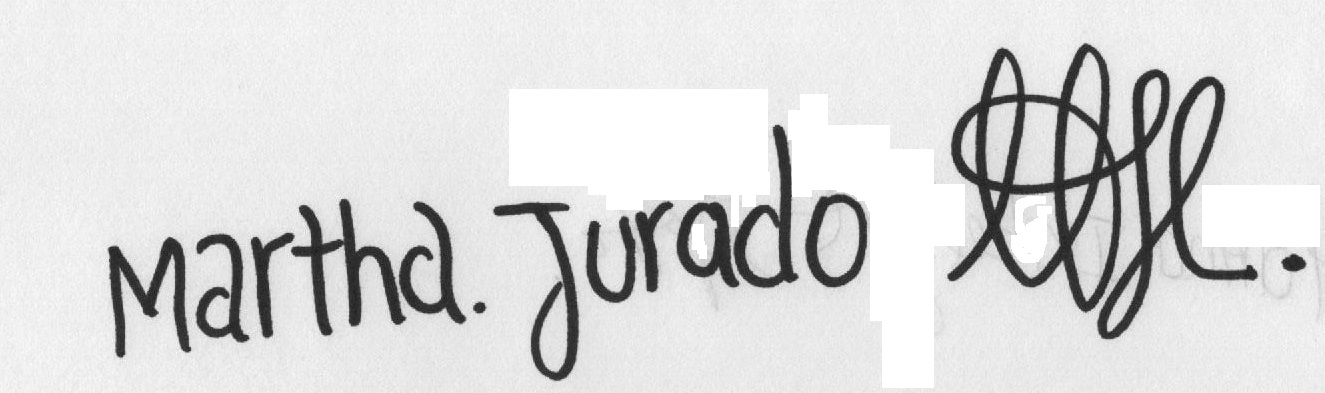 Martha. Jurado